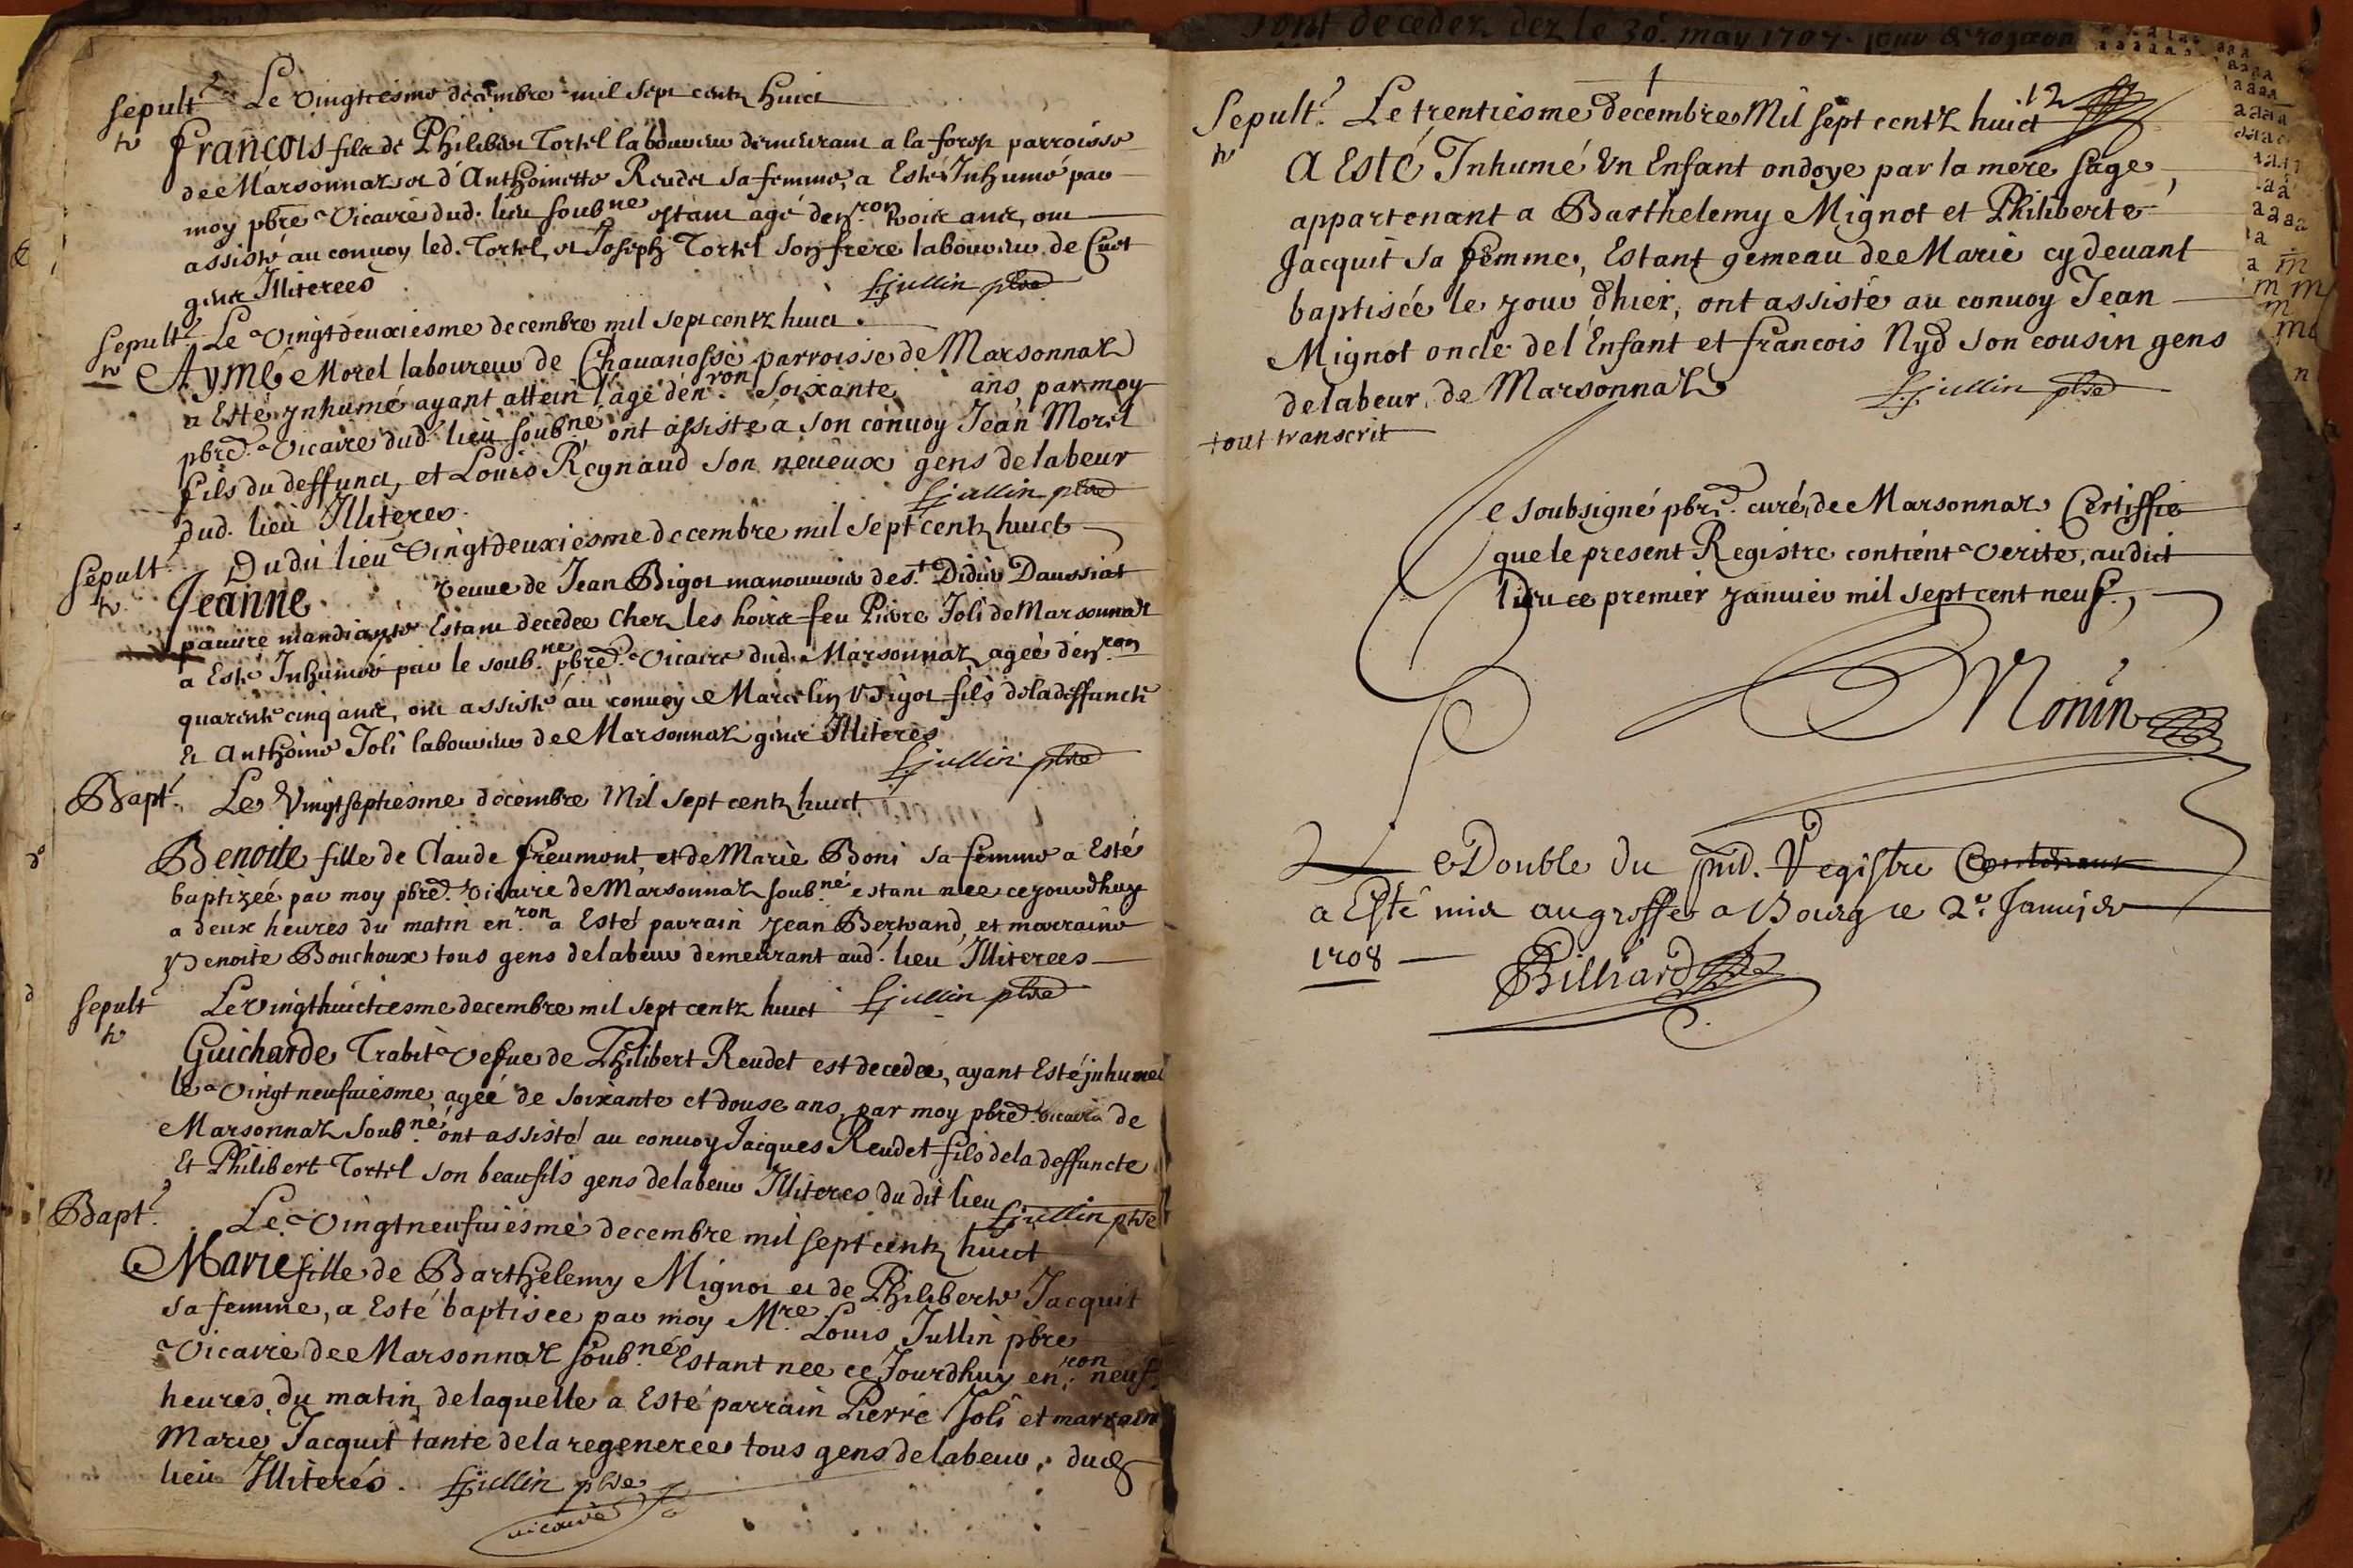 sepult.e Le vingtiesme decembre mil sept centz huict
tr
François fils de Philibert Tortel laboureur demeurant a la forest parroisse
de Marsonnaz et d'Anthoinette Reudet sa femme, a Esté Inhumé par
moy pbre vicaire dud. lieu soub.né estant agé d'en.ron trois ans, ont
assisté au convoy led. Tortel, et Joseph Tortel son frere laboureur de Cuet
gens Illiterees
L. jullin pbre
sepult.e Le vingtdeuxiesme decembre mil sept centz huict.
tr
Aymé Morel laboureur de Chavanosse parroisse de Marsonnaz
a Esté ynhumé ayant attein l'age d'en.ron soixante ans, par moy
pbre. vicaire dud. lieu soub.né, ont assisté a son convoy Jean Morel
fils du deffunct, et Louis Reynaud son neueux gens de labeur
dud. lieu Illiteres.
L. jullin pbre
sepult.e Dudit lieu vingtdeuxiesme decembre mil sept centz huict
tr
Jeanne veuue de Jean Bigot manouurier de S.t Didier Daussiat
pauure mandiante Estant decedee chez les hoirs feu Pierre Joli de Marsonnaz
a Esté Inhumée par le soub.né pbre. vicaire dud. Marsonnaz, agée d'en.ron
quarente cinq ans, ont assisté au convoy Marcelin Bigot fils de la deffuncte
Et Anthoine Joli laboureur de Marsonnaz gens Illiteres
L. jullin pbre
Bapt.e Le vingtseptiesme decembre Mil sept centz huict
Benoite fille de Claude freumont et de Marie Boni sa femme a Esté
baptizée par moy pbre. vicaire de Marsonnaz soub.né estant née ce jourdhuy
a deux heures du matin en.ron a Esté parrain Jean Bertrand, et marraine
Benoite Bouchoux tous gens de labeur demeurant aud. lieu Illiterees
L. jullin pbre
sepult.e Le vingthuictiesme decembre mil sept centz huict
tr
Guicharde Trabit vefue de Philibert Reudet est decedee, ayant Esté jnhumeé
le vingt neufuiesme, agée de soixante et douse ans, par moy pbre. vicaire de
Marsonnaz soub.né ont assisté au convoy Jacques Reudet fils de la deffuncte
Et Philibert Tortel son beaufils gens de labeur Illiteres du dit lieu
L. jullin pbre
Bapt.e Le vingtneufuiesme decembre mil sept centz huict
Marie fille de Barthelemy Mignot et de Philiberte Jacquit
sa femme, a Esté baptisée par moy M.re Louis Jullin pbre
vicaire de Marsonnaz soub.né Estant née ce Jourdhuy en.ron neuf
heures du matin, de laquelle a Esté parrain Pierre Joli et marraine
Marie Jacquit tante de la regeneree tous gens de labeur, dud
lieu Illiterés. L. jullin pbre
vicaire
sont decedez dez le 30. may 1707.
12
Sepult.e Le trentiesme decembre Mil sept centz huict
tr
A Esté Inhumé Un Enfant ondoye par la mere sage,
appartenant a Barthelemy Mignot et Philiberte
Jacquit sa femme, Estant gemeau de Marie cy devant
baptisée le jour d'hier, ont assisté au convoy Jean
Mignot oncle de l'Enfant et francois Nyd son cousin gens
de labeur, de Marsonnaz
L. jullin pbre
tout transcrit
Je soubsigné pbre. curé, de Marsonnaz Certiffie
que le present Registre contient verite, audict
lieu ce premier janvier mil sept cent neuf.,
Monin
Le Double du pnt. Registre
a Esté mis au greffe a Bourg ce 2.e Januier
1708
Billiard